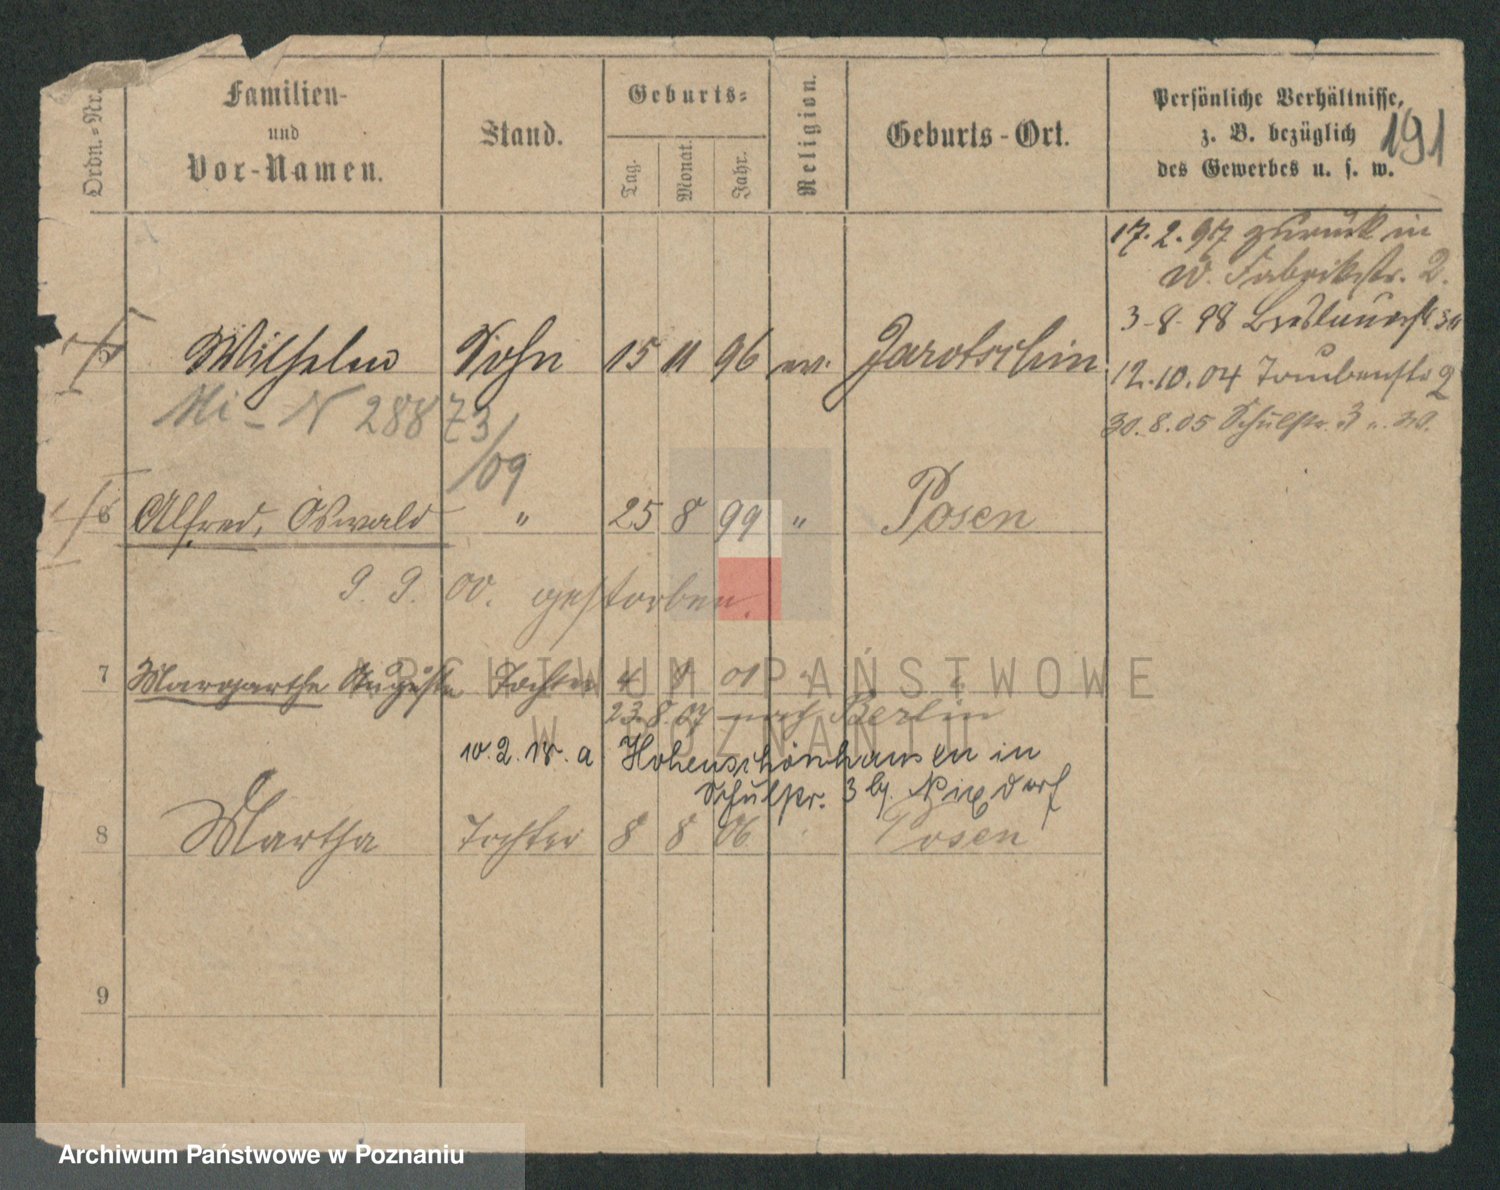 Ordn.=Nr.
Familien-
und
Vor-Namen.
Stand.
Geburts=
Tag.
Monat.
Jahr.
Religion.
Geburts-Ort.
Persönliche Verhältnisse,
z. B. bezüglich
des Gewerbes u. s. w.
191
17. 2. 97 zurück in
W. Fabrikstr. 2.
3. 8. 98
5 Wilhelm Sohn 15 11 96 ev. Jarotschin
12. 10. 04 2
30. 8. 05 Schulstr. 3
N 28873/09
6 Alfred, Oswald " 25 8 99 " Posen
9. 9. 00. gestorben.
7 Margarethe Auguste Tochter 4 01
23. 8. 07 nach Berlin
10. 2. a Hohenschönhausen in
Schulstr. 3 Rixdorf
8 Martha Tochter 8 8 06 Posen
9
ARCHIWUM PAŃSTWOWE
W POZNANIU
Archiwum Państwowe w Poznaniu